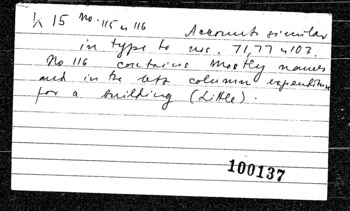 1/2 15 No. 115 & 116 Accounts similar
in type to nos. 71, 77 & 103.
No 116 contains mostly names
and in the left column expenditure
for a building (Little).
100137